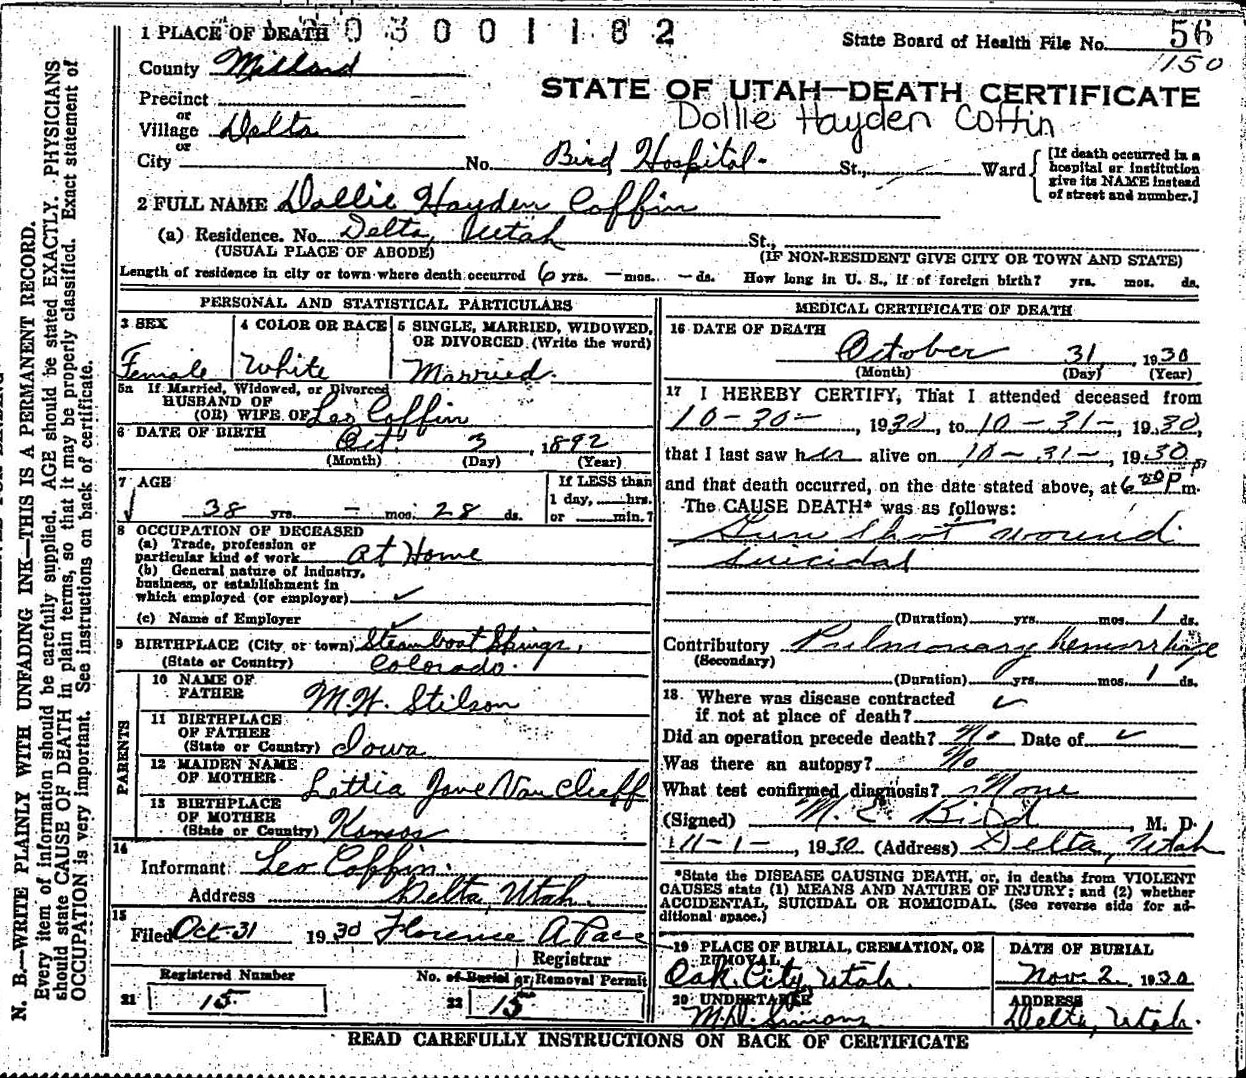 1 PLACE OF DEATH 0 3 0 0 1 1 8 2
State Board of Health File No. 56
1150
County Millard
STATE OF UTAH—DEATH CERTIFICATE
Precinct
Dollie Hayden Coffin
or
Village Delta
or
City No. Bird Hospital St., Ward
[If death occurred in a hospital or institution give its NAME instead of street and number.]
2 FULL NAME Dollie Hayden Coffin
(a) Residence. No. Delta, Utah St.,
(USUAL PLACE OF ABODE) (IF NON-RESIDENT GIVE CITY OR TOWN AND STATE)
Length of residence in city or town where death occurred 6 yrs. — mos. — ds. How long in U. S., if of foreign birth? yrs. mos. ds.
PERSONAL AND STATISTICAL PARTICULARS
3 SEX Female
4 COLOR OR RACE White
5 SINGLE, MARRIED, WIDOWED, OR DIVORCED (Write the word) Married
5a If Married, Widowed, or Divorced
HUSBAND OF
(OR) WIFE OF Leo Coffin
6 DATE OF BIRTH Oct. 3, 1892
(Month) (Day) (Year)
7 AGE
38 yrs. — mos. 28 ds.
If LESS than 1 day, hrs. or min.?
8 OCCUPATION OF DECEASED
(a) Trade, profession or
particular kind of work At Home
(b) General nature of industry,
business, or establishment in
which employed (or employer) ✓
(c) Name of Employer ✓
9 BIRTHPLACE (City or town) Steamboat Springs,
(State or Country) Colorado.
PARENTS
10 NAME OF FATHER M. W. Stilson
11 BIRTHPLACE OF FATHER
(State or Country) Iowa
12 MAIDEN NAME OF MOTHER Lettia Jane Van Cleaff
13 BIRTHPLACE OF MOTHER
(State or Country) Kansas
14
Informant Leo Coffin.
Address Delta, Utah.
15
Filed Oct-31 1930 Florence A. Pace
Registrar
Registered Number
21 15
No. of Burial or Removal Permit
22 15
MEDICAL CERTIFICATE OF DEATH
16 DATE OF DEATH
October 31, 1930
(Month) (Day) (Year)
17 I HEREBY CERTIFY, That I attended deceased from
10-30-, 1930, to 10-31-, 1930,
that I last saw her alive on 10-31-, 1930
and that death occurred, on the date stated above, at 6 30 P m.
The CAUSE DEATH* was as follows:
Gun Shot wound
Suicidal
(Duration) yrs. mos. 1 ds.
Contributory Pulmonary hemorrhage
(Secondary)
(Duration) yrs. mos. 1 ds.
18. Where was disease contracted
if not at place of death? ✓
Did an operation precede death? No Date of ✓
Was there an autopsy? No
What test confirmed diagnosis? None
(Signed) M. E. Bird, M. D.
11-1-, 1930 (Address) Delta, Utah
*State the DISEASE CAUSING DEATH, or, in deaths from VIOLENT
CAUSES state (1) MEANS AND NATURE OF INJURY; and (2) whether
ACCIDENTAL, SUICIDAL OR HOMICIDAL. (See reverse side for ad-
ditional space.)
19 PLACE OF BURIAL, CREMATION, OR REMOVAL
Oak City, Utah.
DATE OF BURIAL
Nov. 2 1930
20 UNDERTAKER
Simons
ADDRESS
Delta, Utah.
READ CAREFULLY INSTRUCTIONS ON BACK OF CERTIFICATE
N. B.—WRITE PLAINLY WITH UNFADING INK—THIS IS A PERMANENT RECORD.
Every item of information should be carefully supplied. AGE should be stated EXACTLY. PHYSICIANS
should state CAUSE OF DEATH in plain terms, so that it may be properly classified. Exact statement of
OCCUPATION is very important. See instructions on back of certificate.